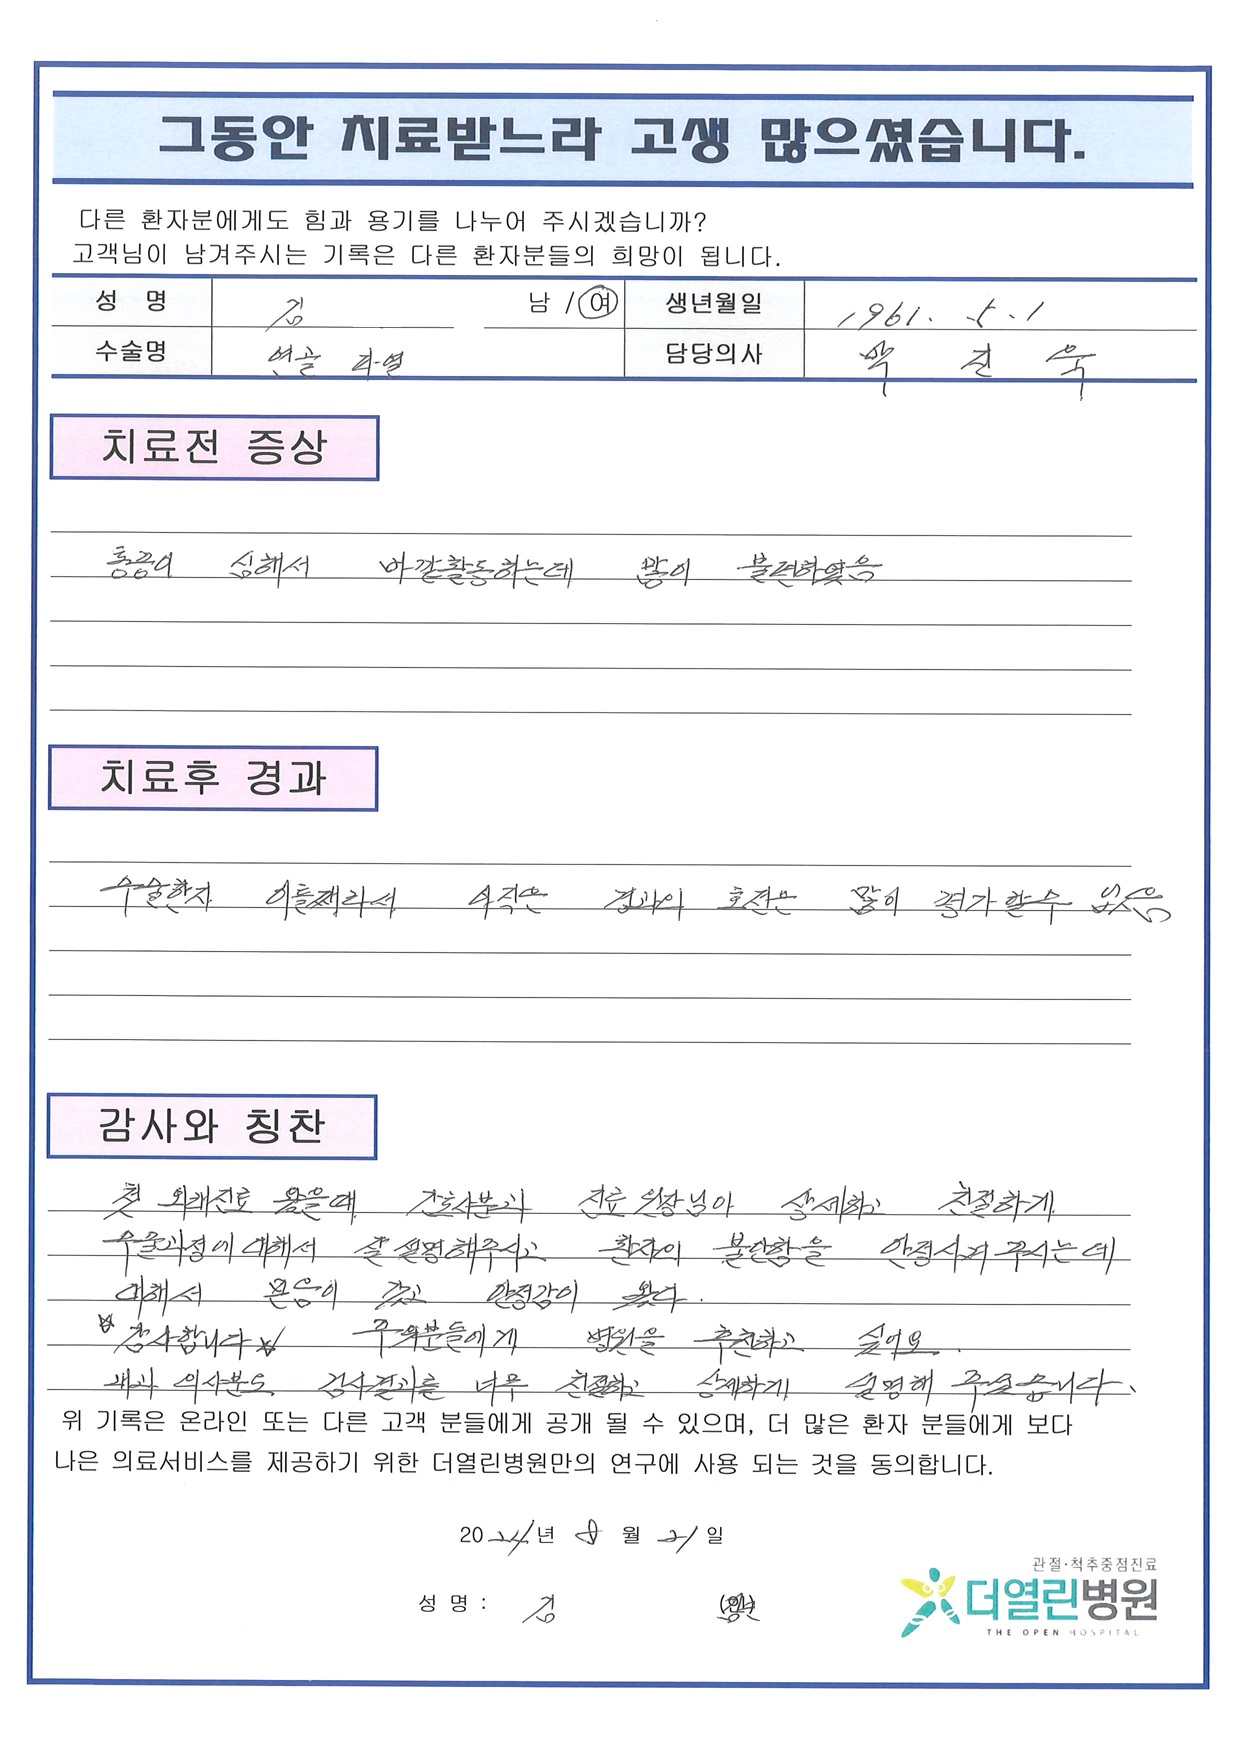 그동안 치료받느라 고생 많으셨습니다.
다른 환자분에게도 힘과 용기를 나누어 주시겠습니까?
고객님이 남겨주시는 기록은 다른 환자분들의 희망이 됩니다.
성 명 김 남 / 여 생년월일 1961. 5. 1
수술명 연골 파열 담당의사 박 진 욱
치료전 증상
통증이 심해서 바깥활동하는데 많이 불편하였음
치료후 경과
수술한지 이틀째라서 아직은 경과의 호전은 많이 평가할수 없음
감사와 칭찬
첫 외래진료 왔을때 간호사분과 진료 원장님이 상세하고 친절하게
수술과정에 대해서 잘 설명해주시고 환자의 불안함을 안정시켜 주시는데
대해서 믿음이 갔고 안정감이 왔다.
감사합니다 주위분들에게 병원을 추천하고 싶어요.
내과 의사분도 검사결과를 너무 친절하고 상세하게 설명해 주셨습니다.
위 기록은 온라인 또는 다른 고객 분들에게 공개 될 수 있으며, 더 많은 환자 분들에게 보다
나은 의료서비스를 제공하기 위한 더열린병원만의 연구에 사용 되는 것을 동의합니다.
2024년 8월 21일
성 명 : 김
관절·척추중점진료
더열린병원
THE OPEN HOSPITAL